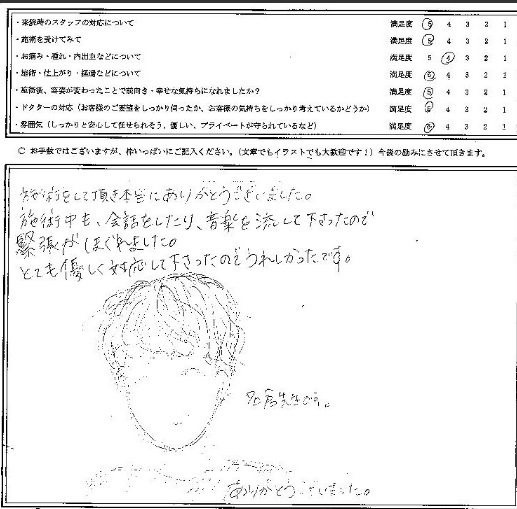 ・来院時のスタッフの対応について 満足度 5 4 3 2 1
・施術を受けてみて 満足度 5 4 3 2 1
・お痛み・腫れ・内出血などについて 満足度 5 4 3 2 1
・施術・仕上がり・経過などについて 満足度 5 4 3 2 1
・施術後、容姿が変わったことで前向き・幸せな気持ちになれましたか? 満足度 5 4 3 2 1
・ドクターの対応(お客様のご要望をしっかり伺ったか、お客様の気持ちをしっかり考えているかどうか) 満足度 5 4 3 2 1
・雰囲気(しっかりと安心して任せられそう、優しい、プライベートが守られているなど) 満足度 5 4 3 2 1
○ お手数ではございますが、枠いっぱいにご記入ください。(文章でもイラストでも大歓迎です!)今後の励みにさせて頂きます。
施術をして頂き本当にありがとうございました。
施術中も、会話をしたり、音楽を流して下さったので
緊張がほぐれました。
とても優しく対応して下さったのでうれしかったです。
先生です。
ありがとうございました。